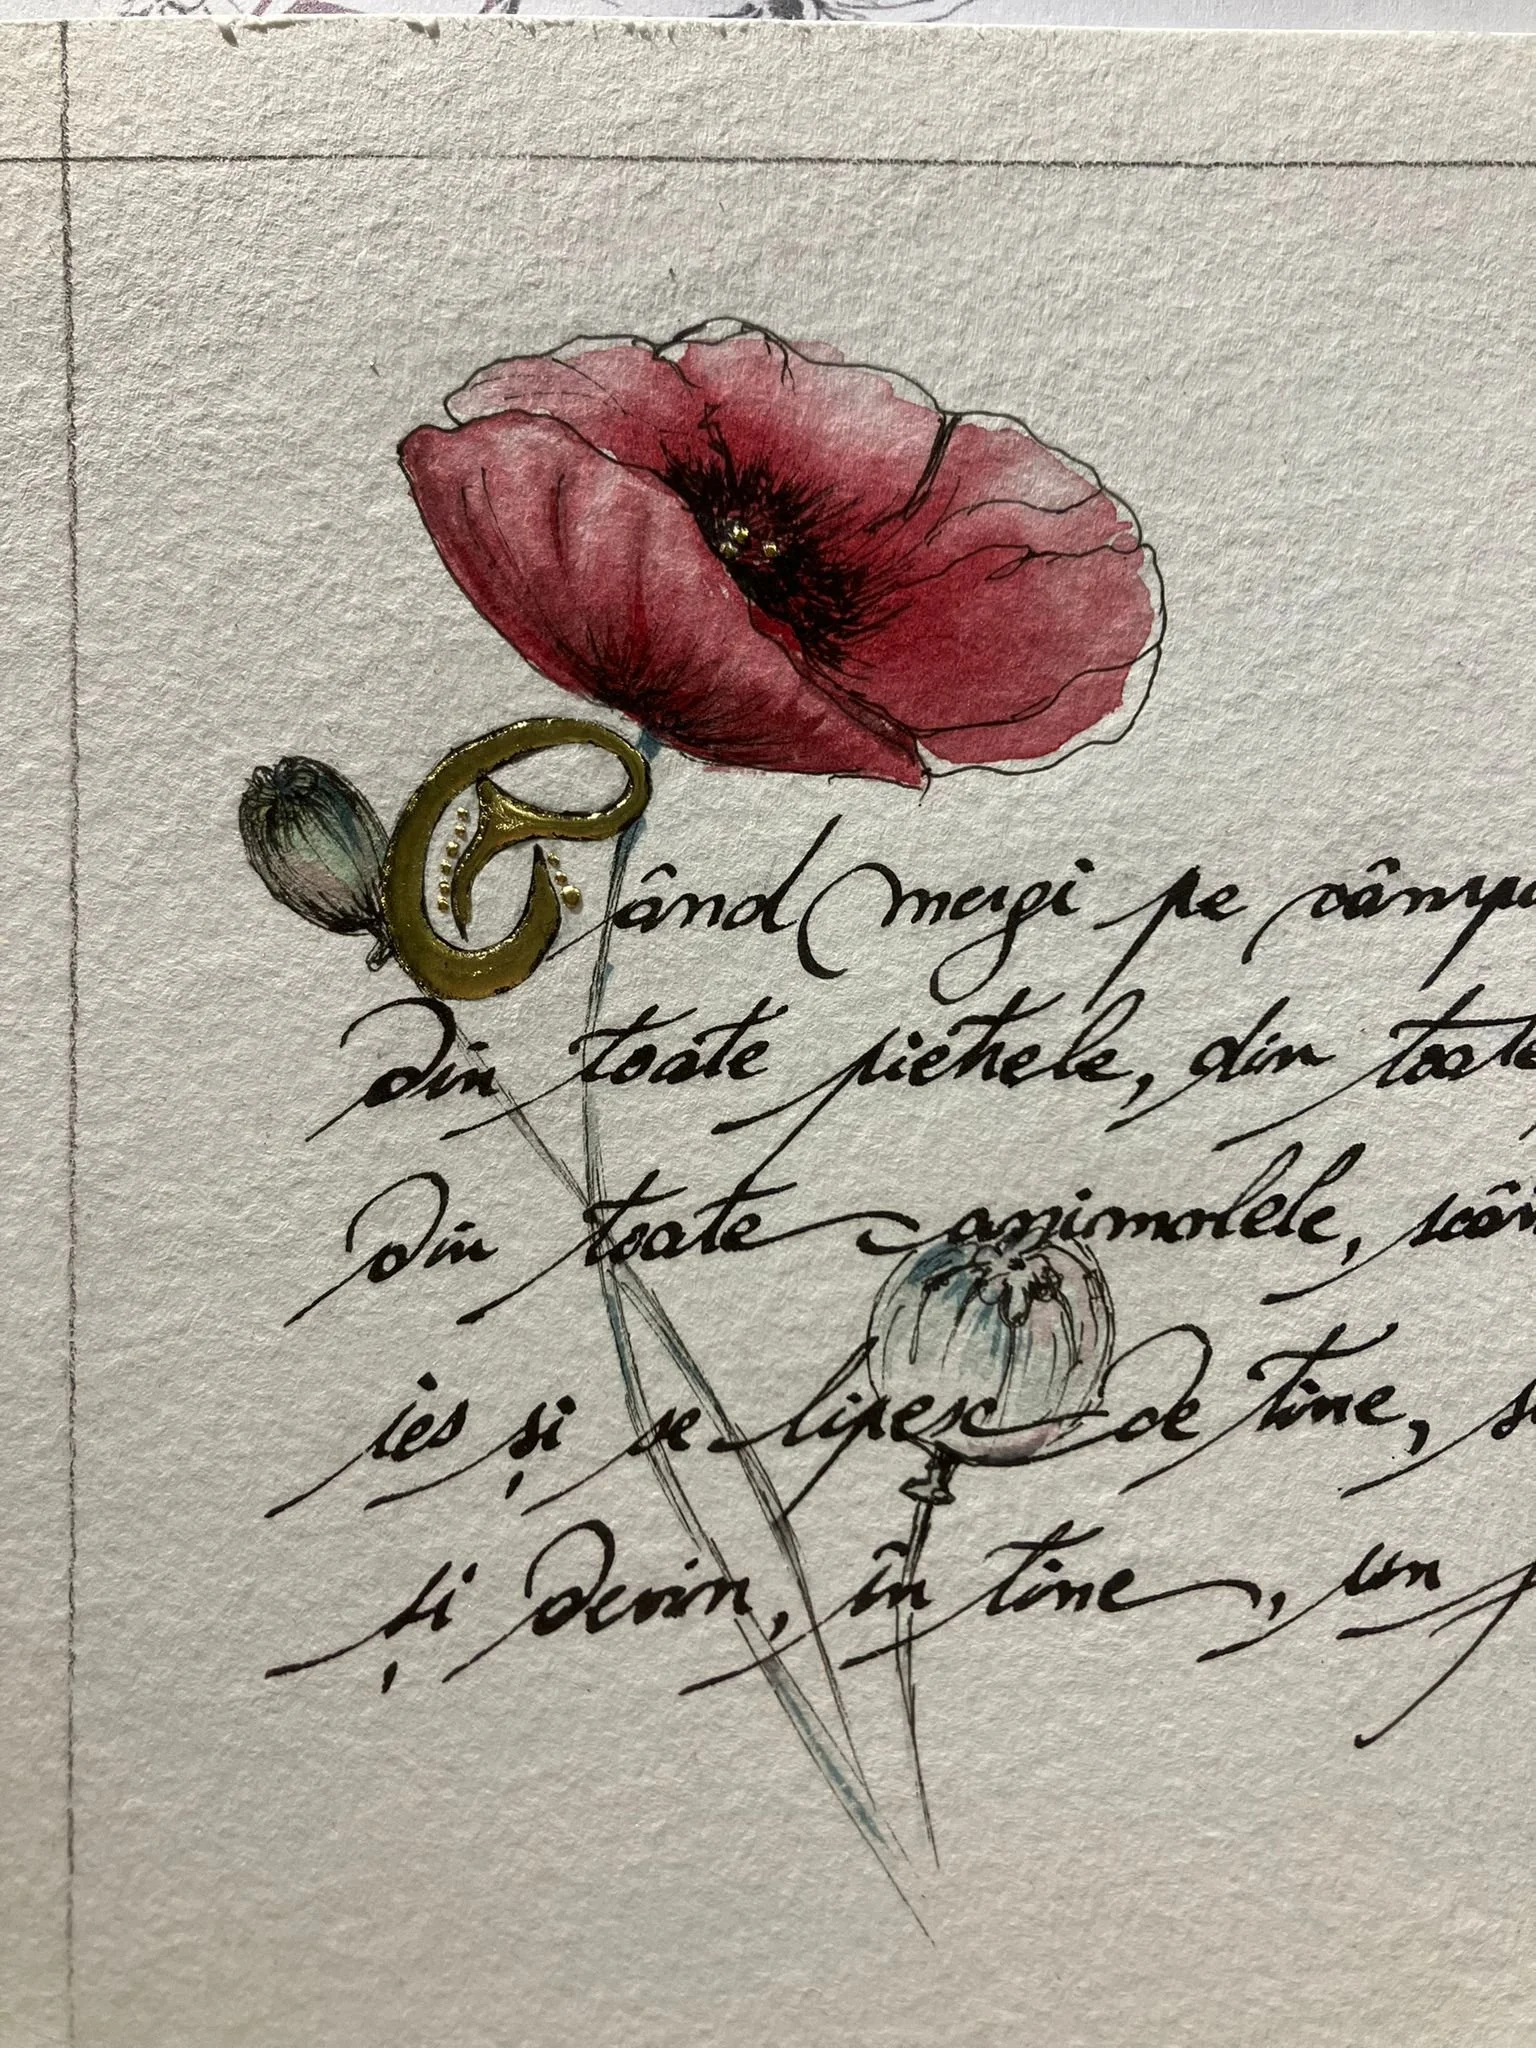 Când mergi pe câmp
din toate pietrele, din toate
din toate animalele,
ies și se lipesc de tine,
și devin, în tine, un